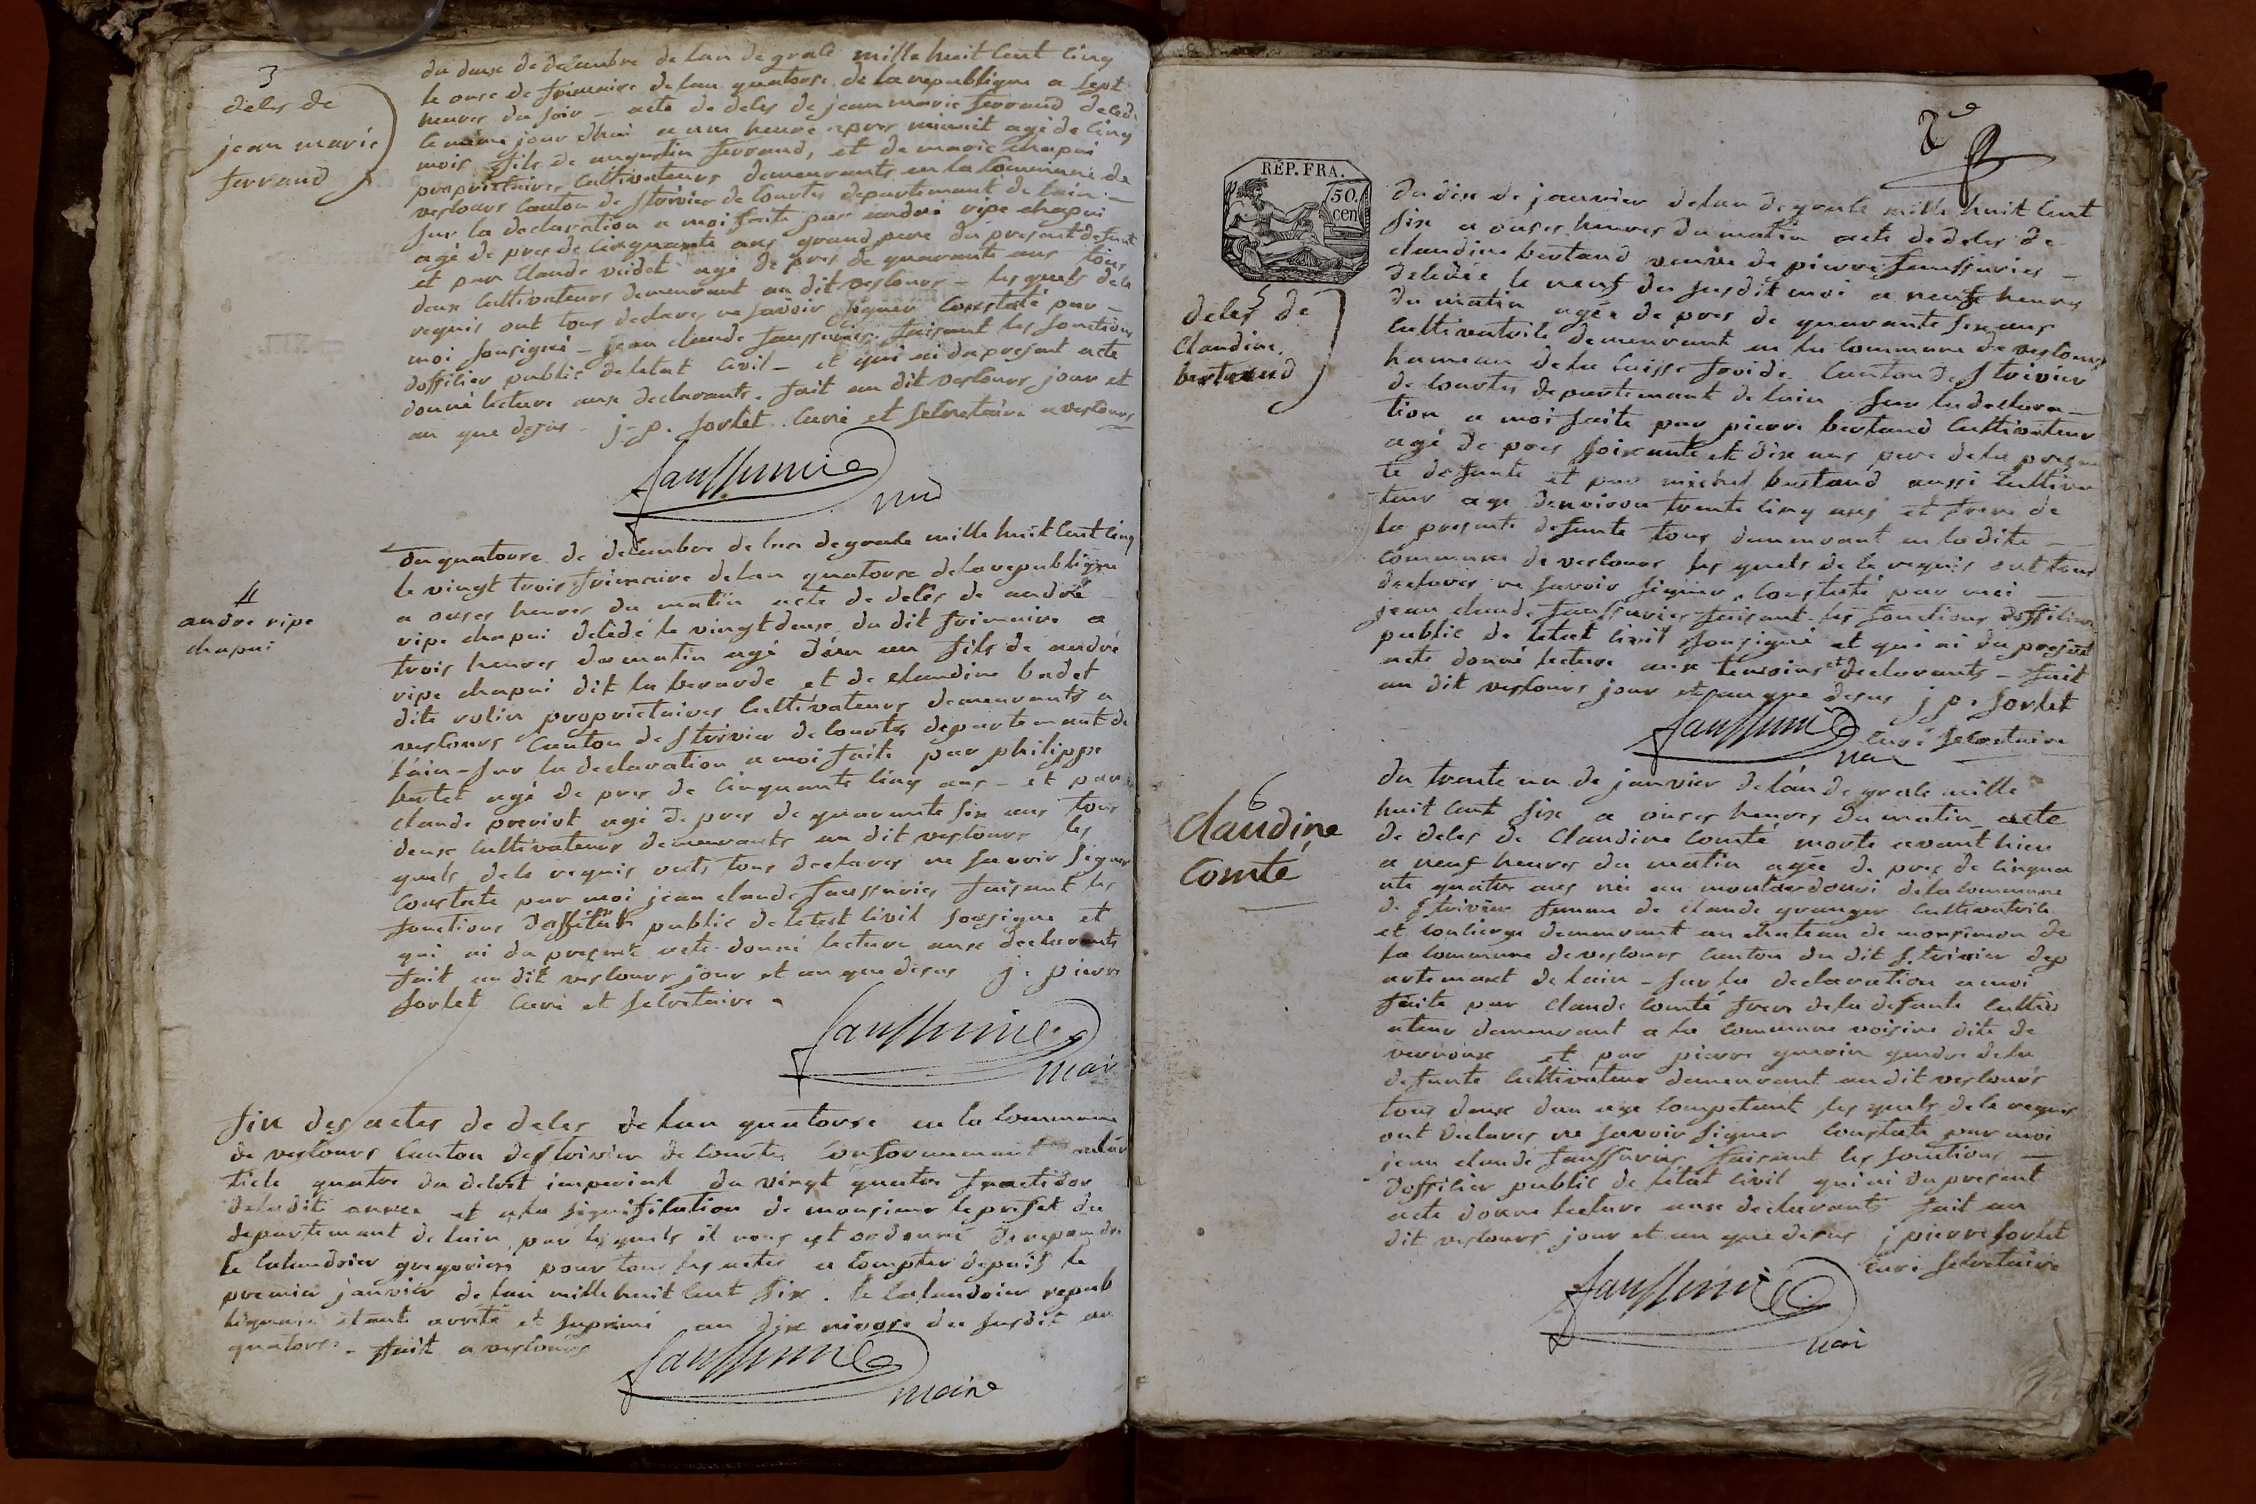 3
deces de
jean marie
ferrand
du deux de decembre de lan de grace mille huit cent cinq
le onze de frimaire de lan quatorse de la republique a sept
heures du soir _ acte de deces de jean marie ferrand decedé
le même jour dhui a une heure apres minuit agé de cinq
mois fils de augustin ferrand, et de marie chapui
proprietaires cultivateurs demeurants en la commune de
vescours canton de st trivier de courtes departement de lain _
sur la declaration a moi faite par andré ripe chapui
agé de pres de cinquante ans grand pere du present defunt
et par claude veidet agé de pres de quarante ans tous
deux cultivateurs demeurant au dit vescours _ les quels de ce
requis ont tous declares ne savoir signer constaté par _
moi sousigné _ jean claude faussurier faisant les fonctions
dofficier public de letat civil _ et qui ai du present acte
donné lecture aux declarants. fait au dit vescours jour et
an que desus _ j. p. sorlet curé et secretaire a vescours
faussurier
4
andre ripe
chapui
du quatorse de decembre de lan de grace mille huit cent cinq
le vingt trois frimaire de lan quatorse de la republique
a onses heures du matin acte de deces de andré
ripe chapui decedé le vingt deux du dit frimaire a
trois heures du matin agé d'un an fils de andré
ripe chapui dit la berarde et de claudine badet
dite rolin proprietaires cultivateurs demeurants a
vescours canton de st trivier de courtes departemant de
l'ain _ sur la declaration a moi faite par philippe
butet agé de pres de cinquante cinq ans _ et par
claude previot agé de pres de quarante six ans tous
deux cultivateurs demeurants au dit vescours les
quels de ce requis onts tous declares ne savoir signer
constate par moi jean claude faussurier faisant les
fonctions dofficier public de letat civil sousigne et
qui ai du present acte donné lecture aux declarants
fait au dit vescours jour et an que desus j. pierre
sorlet curé et secretaire
faussurier
mair
fin des actes de deces de lan quatorse en la commune
de vescours canton de st trivier de courtes conformemant
ticle quatre du decret imperial du vingt quatre fructidor
de ladit annee et a la signification de monsieur le prefet du
departemant de lain par lesquels il nous est ordonné
le calandrier gregorien pour tous les actes a compter depuis le
premier janvier de lan mille huit cent six. le calandrier repub
liquain etant arrété et suprimé au dix nivose du susdit an
quatorse. fait a vescours
faussurier
maire
2e
RÉP. FRA.
50
cen
5
deces de
Claudine
bertaud
du dix de janvier de lan de grace mille huit cent
six a onses heures du matin acte de deces de
claudine bertaud veuve de pierre faussurier _
decedée le neuf du susdit moi a neufe heures
du matin agée de pres de quarante six ans
cultivatrice demeurant en la commune de vescours
hameau de la caisse froide. canton de st trivier
de courtes departemant de lain sur la declara _
tion a moi faite par pierre bertaud cultivateur
agé de pres soixante et dix ans pere de la presen
te defunte et par michel bertaud aussi cultiva
teur agé denviron trente cinq ans et frere de
la presente defunte tous demeurant en la dite _
commune de vescours les quels de ce requis ont tous
declares ne savoir signer. constaté par moi _
jean claude faussurier faisant les fonctions dofficier
public de letat civil sousigné et qui ai du present
acte donné lecture aux temoins et declarants _ fait
au dit vescours jour et an que desus j p. sorlet
curé secretaire
faussurier
6
Claudine
Comte
du trente un de janvier de l'an de grace mille
huit cent six a onses heures du matin acte
de deces de claudine comte morte avant hier
a neuf heures du matin agée de pres de cinqua
nte quatre ans née au de la commune
de st trivier femme de claude granger cultivatrice
et concierge demeurant au chateau de monsimon de
la commune de vescours canton du dit st trivier dep
artemant de lain _ sur la declaration a moi
faite par claude comte frere de la defunte cultiv
ateur demeurant a la commune voisine dite de
vernoux et par pierre guerin gendre de la
defunte cultivateur demeurant au dit vescours
tous deux dun age competant les quels de ce requis
ont declares ne savoir signer constaté par moi
jean claude faussurier faisant les fonctions _
dofficier public de l'état civil qui ai du present
acte donné lecture aux declarants fait au
dit vescours jour et an que desus j pierre sorlet
curé secretaire
faussurier
mair